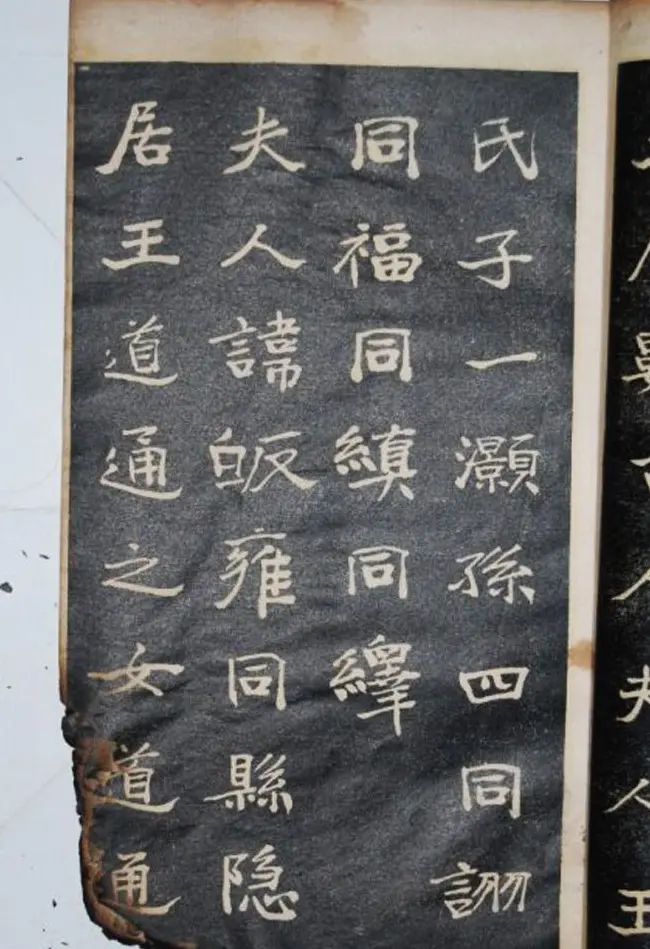 夫人王
氏子一灝孫四同詡
同福同縝同繹
夫人諱皈雍同縣隐
居王道通之女道通